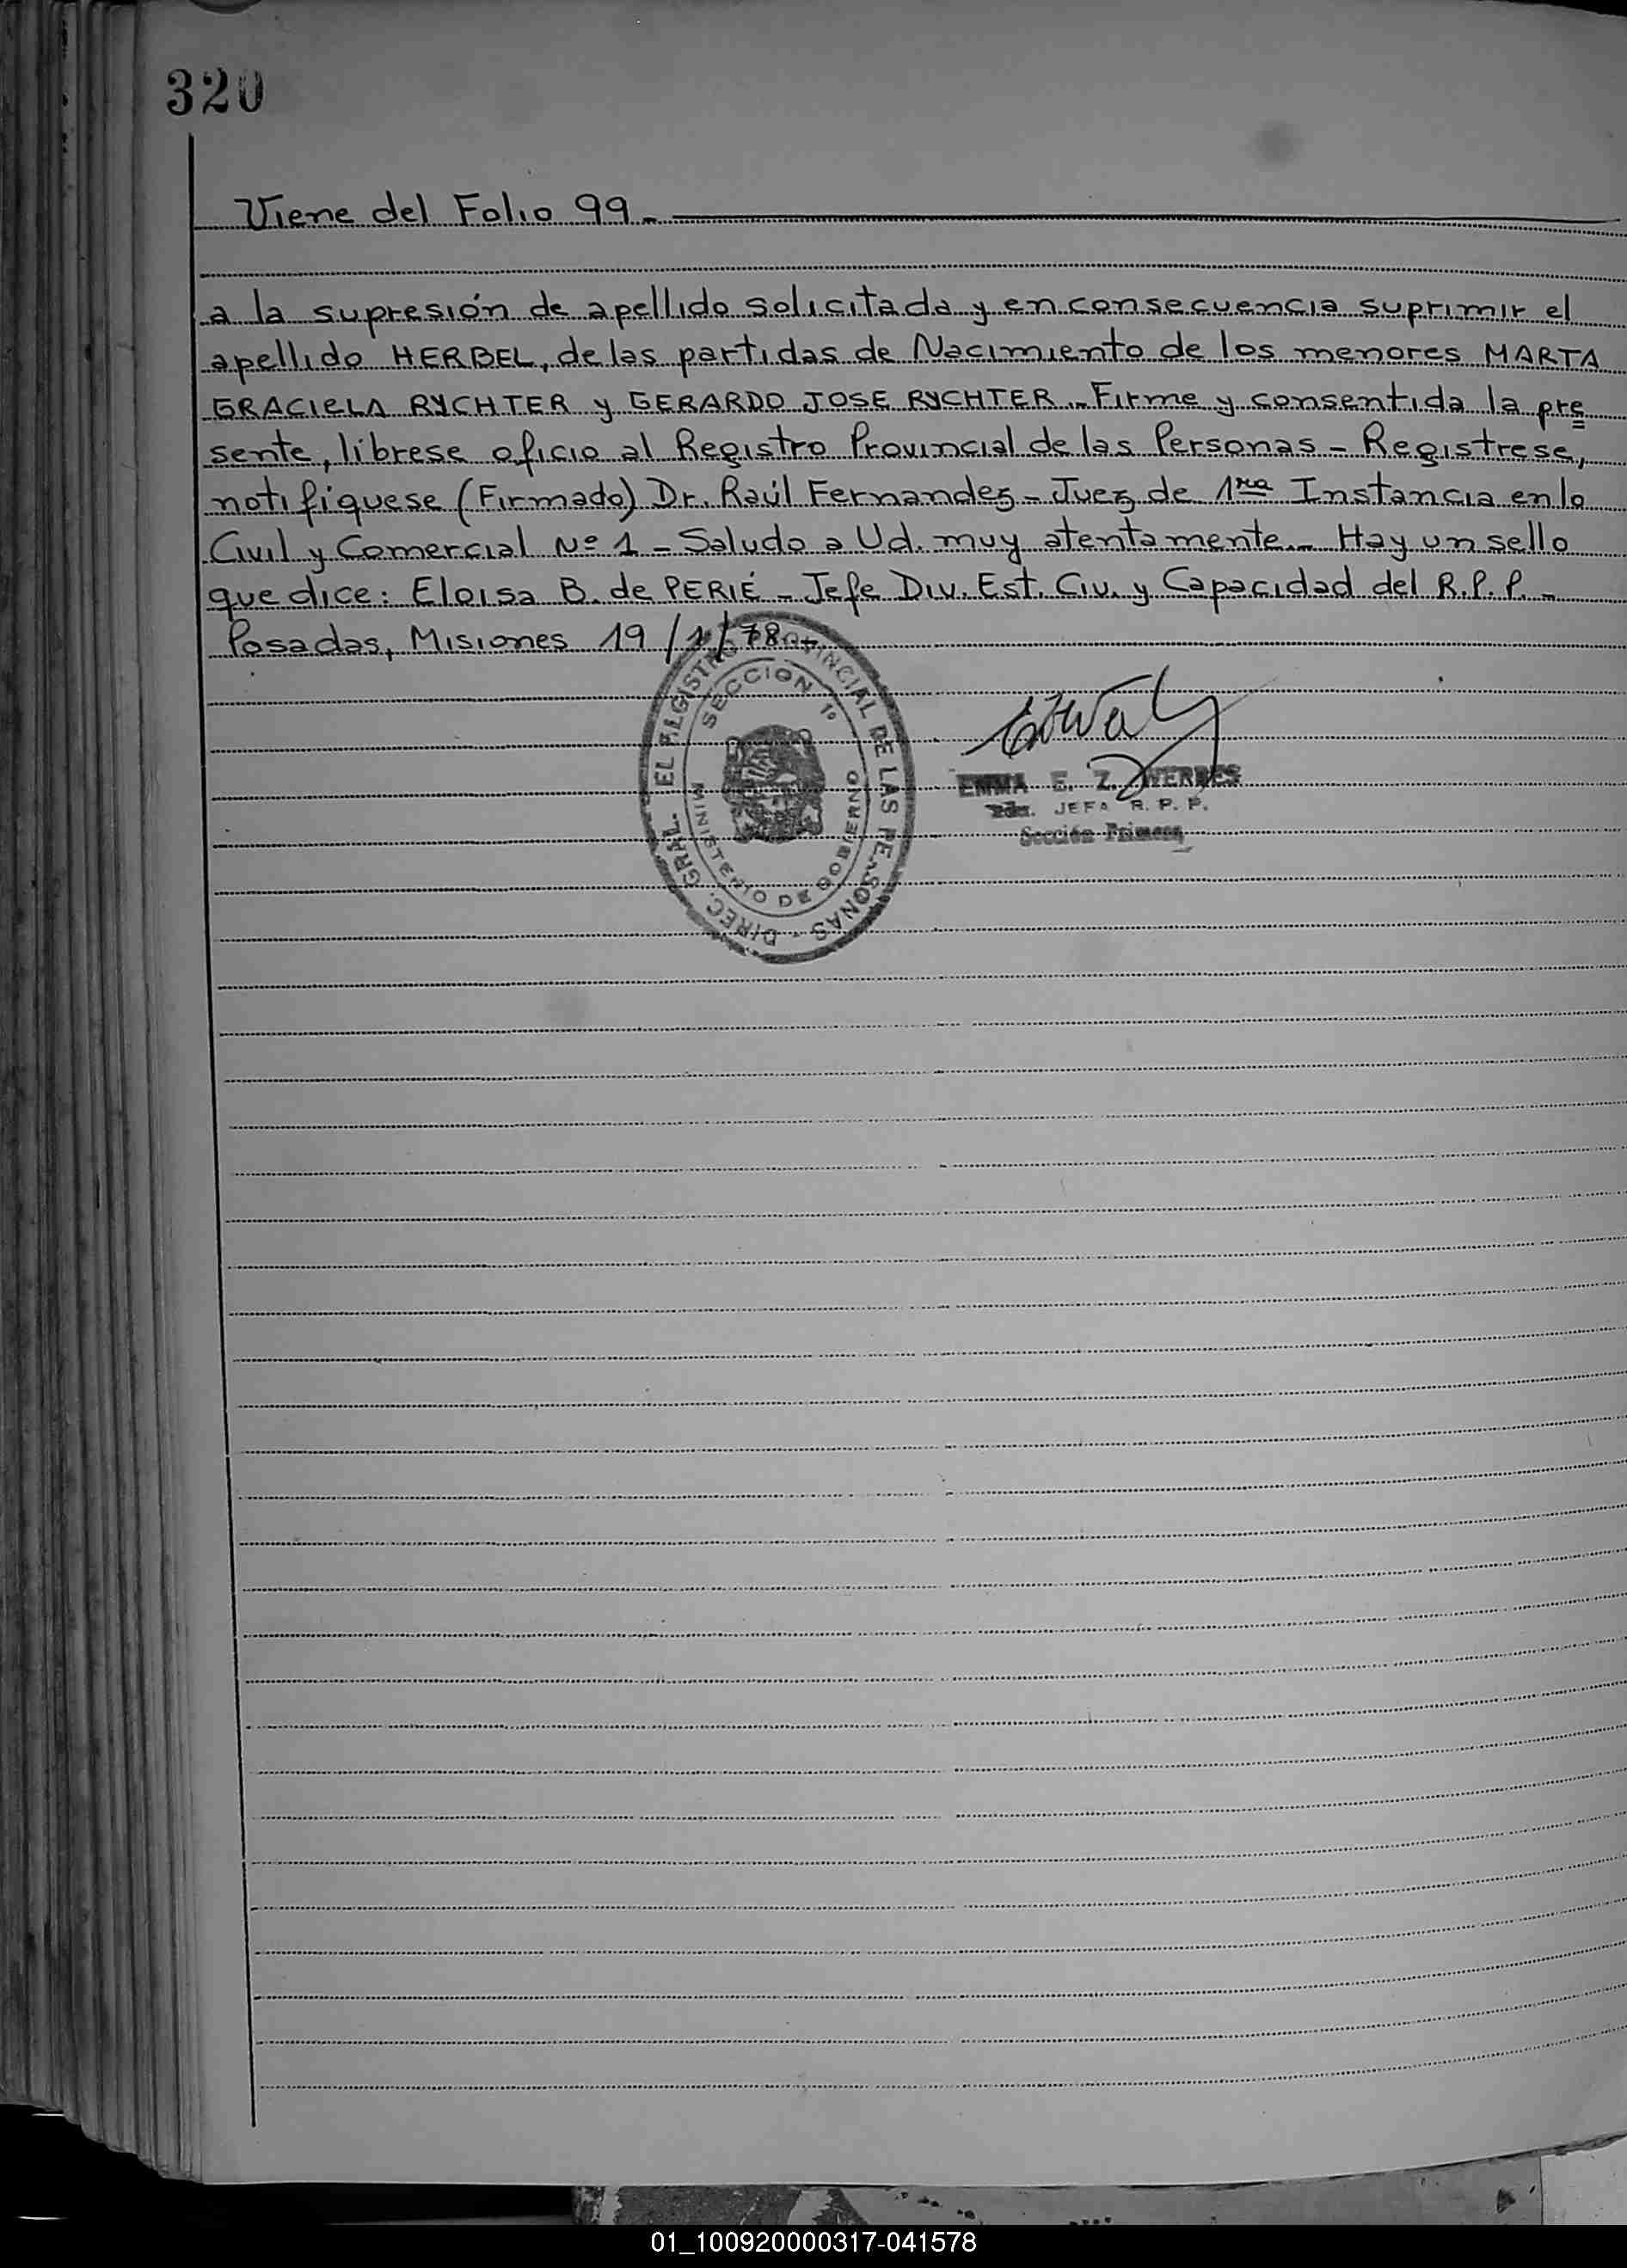 320
Viene del Folio 99.-
a la supresión de apellido solicitada y en consecuencia suprimir el
apellido HERBEL, de las partidas de Nacimiento de los menores MARTA
GRACIELA RYCHTER y GERARDO JOSE RYCHTER.- Firme y consentida la pre
sente, líbrese oficio al Registro Provincial de las Personas - Registrese,
notifíquese (Firmado) Dr. Raúl Fernandez - Juez de 1ra Instancia en lo
Civil y Comercial Nº 1 - Saludo a Ud. muy atentamente.- Hay un sello
que dice: Eloisa B. de PERIÉ - Jefe Div. Est. Civ. y Capacidad del R.P.P. -
Posadas, Misiones 19/1/78.-
DIREC. GRAL. EL REGISTRO PROVINCIAL DE LAS PERSONAS -
SECCION 1º
MINISTERIO DE GOBIERNO
EMMA E. Z.
JEFA R. P. P.
Sección Primera
01_100920000317-041578